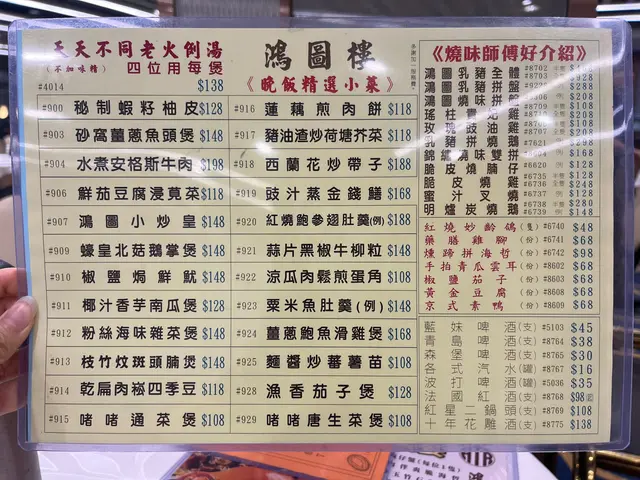 天天不同老火例湯
(不加味精) 四位用每煲
#4014 $138
鴻圖樓
《晚飯精選小菜》
#900 秘制蝦籽柚皮 $128
#903 砂窩薑蔥魚頭煲 $148
#904 水煮安格斯牛肉 $198
#906 鮮茄豆腐浸莧菜 $118
#907 鴻圖小炒皇 $148
#909 蠔皇北菇鵝掌煲 $148
#910 椒鹽焗鮮魷 $148
#911 椰汁香芋南瓜煲 $128
#912 粉絲海味雜菜煲 $148
#913 枝竹炆斑頭腩煲 $148
#914 乾扁肉崧四季豆 $118
#915 啫啫通菜煲 $108
#916 蓮藕煎肉餅 $118
#917 豬油渣炒荷塘芥菜 $118
#918 西蘭花炒帶子 $188
#919 豉汁蒸金錢鱔 $168
#920 紅燒鮑參翅肚羹(例) $188
#921 蒜片黑椒牛柳粒 $148
#922 涼瓜肉鬆煎蛋角 $108
#923 粟米魚肚羹(例) $148
#924 薑蔥鮑魚滑雞煲 $168
#925 麵醬炒蕃薯苗 $108
#928 漁香茄子煲 $128
#929 啫啫唐生菜煲 $108
《燒味師傅好介紹》
鴻圖乳豬全體
鴻圖乳豬拼盤
鴻圖燒味拼
錦爐燒味雙拼
脆皮燒腩仔
脆皮燒雞
蜜汁叉燒
明爐炭燒鵝
紅燒妙齡鴿 (隻) #6740 $48
藥膳雞腳 (份) #6741 $68
燻蹄拼海哲 (份) #6742 $98
手拍青瓜雲耳 (份) #8602 $68
椒鹽茄子 (份) #8603 $68
黃金豆腐 (份) #8608 $68
京式素鴨 (份) #8609 $68
藍妹啤酒(支) #5103 $45
青島啤酒(支) #8764 $38
森堡啤酒(支) #8765 $30
各式汽水(罐) #8767 $16
波打啤酒(罐) #5036 $35
法國紅酒(支) #8768 $98起
紅星二鍋頭(支) #8769 $108
十年花雕酒(支) #8775 $138